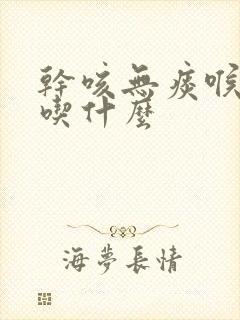 幹咳無痰喉
喫什麼
海夢長情